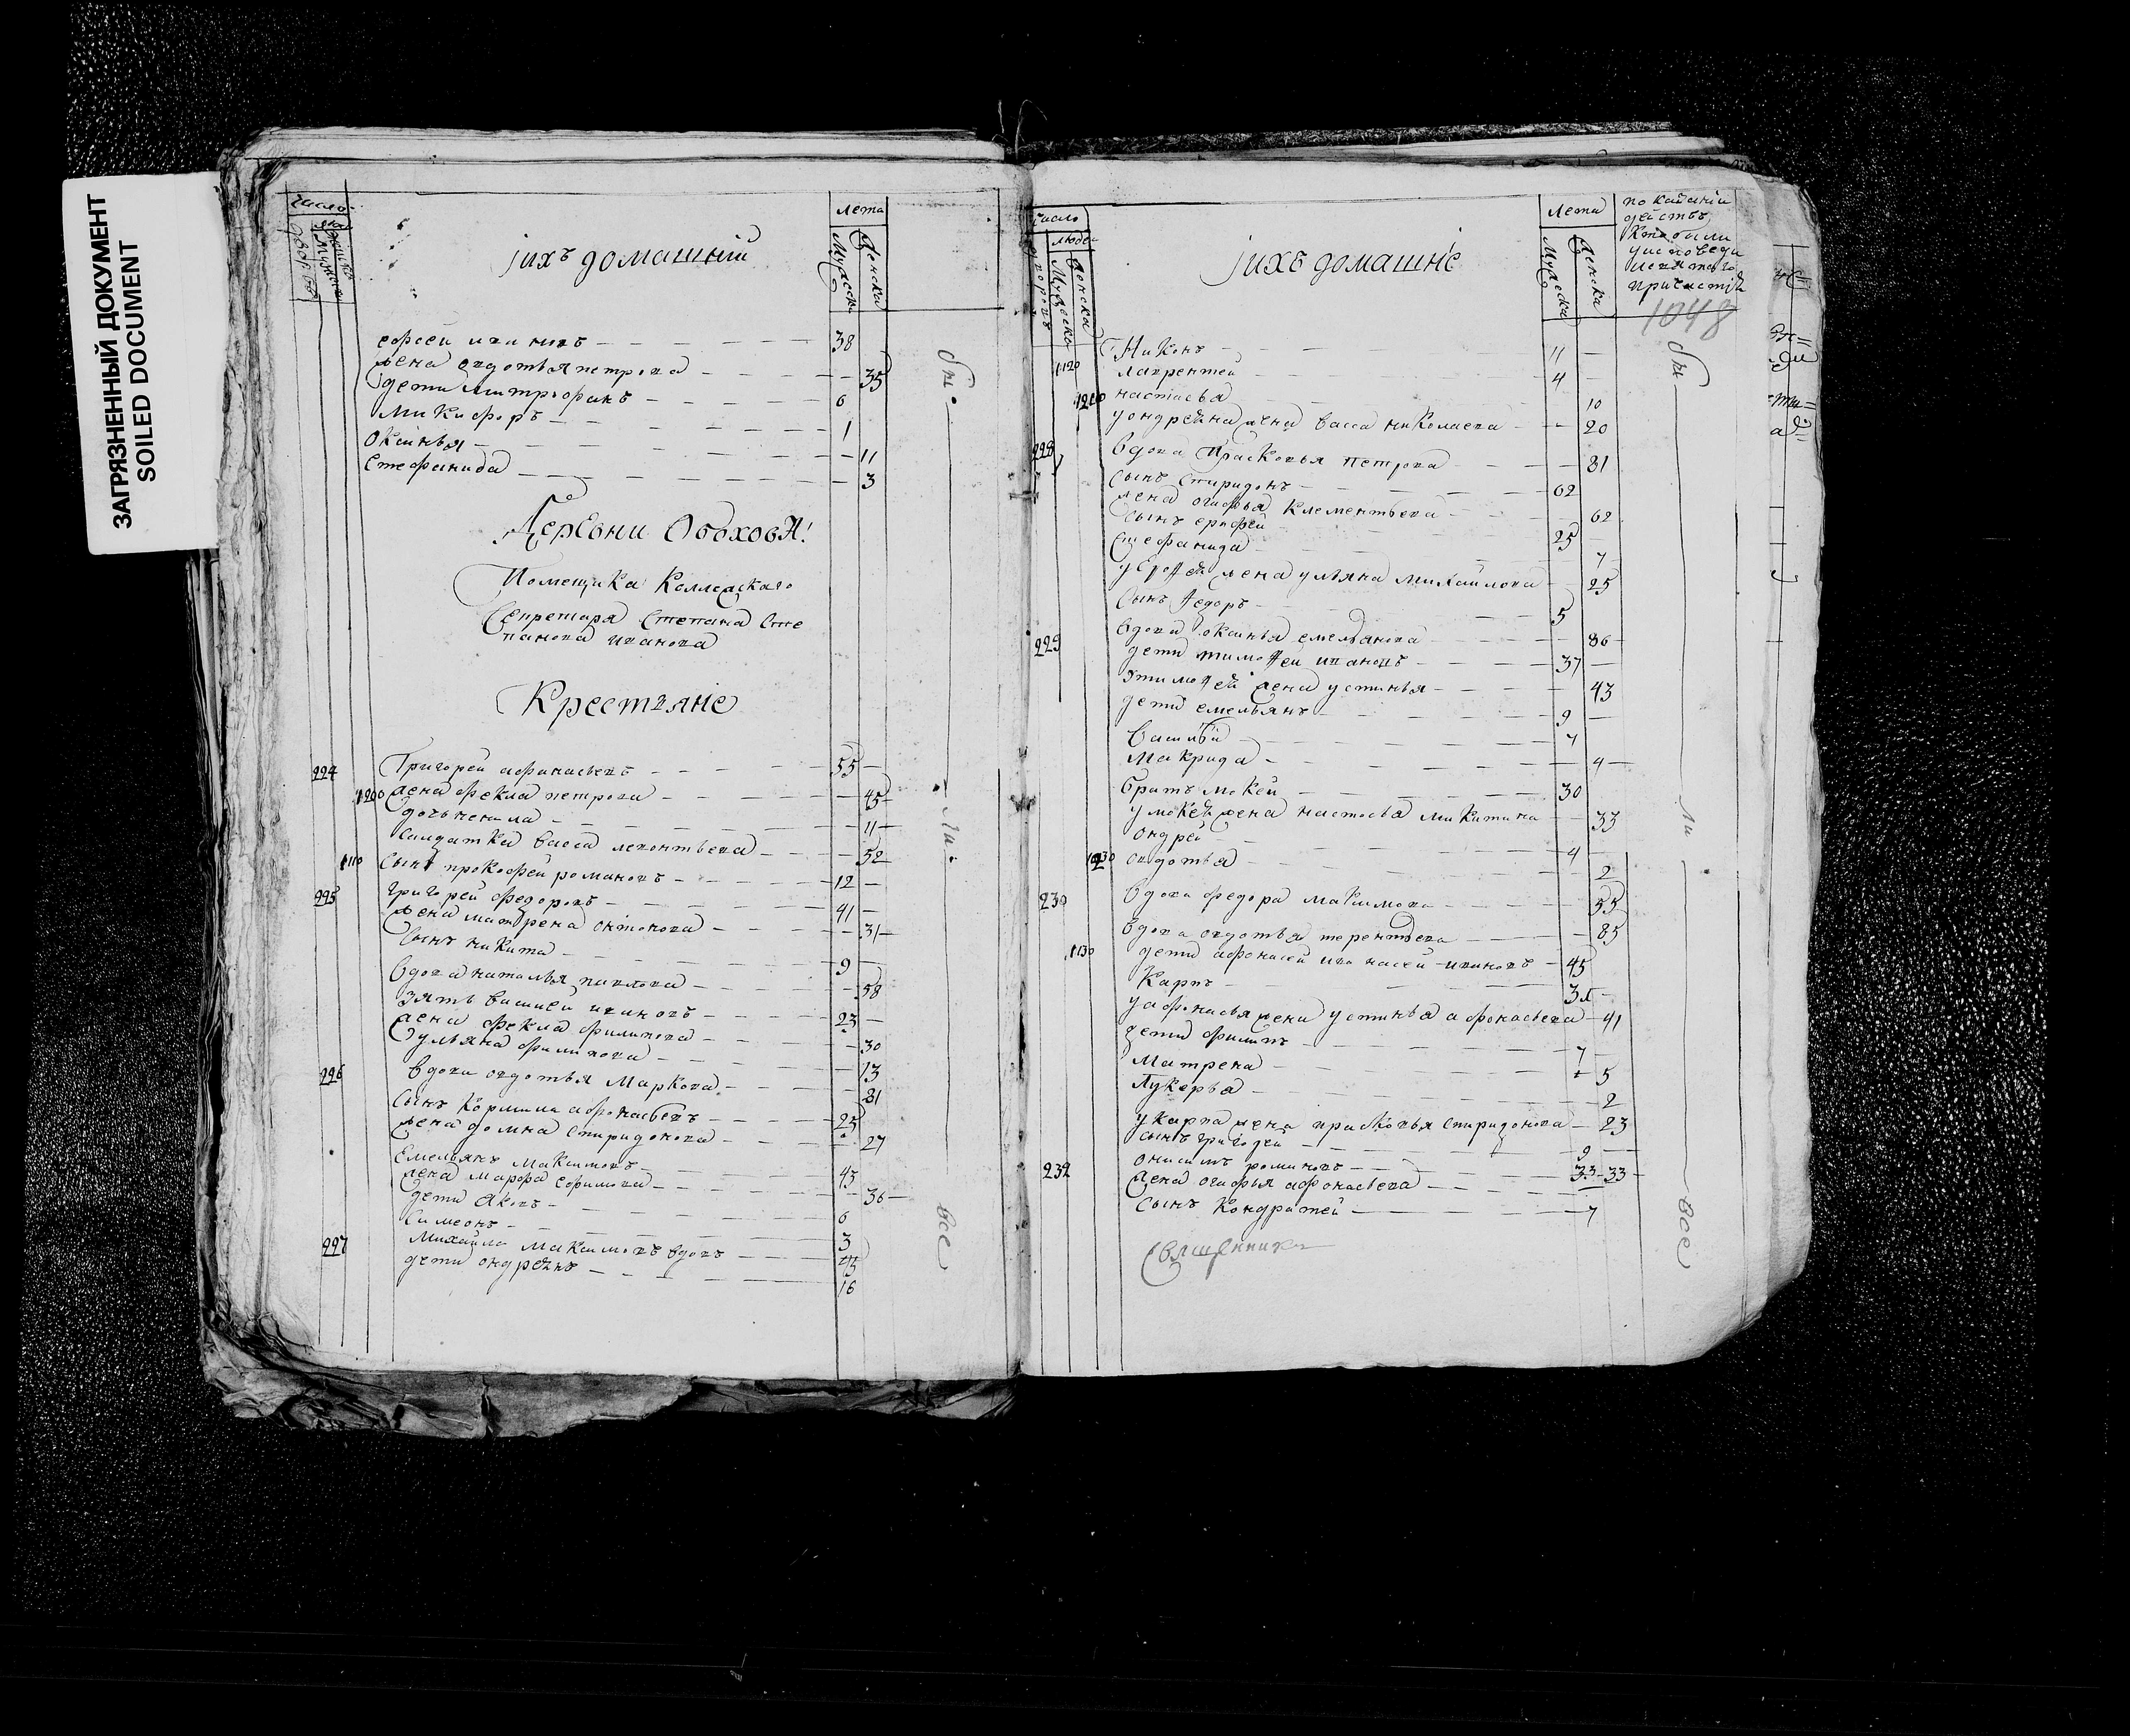 ЗАГРЯЗНЕННЫЙ ДОКУМЕНТ
SOILED DOCUMENT
число
лета
Мужеска
Женска
јихъ домашнии
ефсеи иванивъ 38
жена овдотья петрова 35
дети митрофанъ 6
микифоръ 1
оксинья 11
стефанида 3
Деревни
Помещика Коллежскаго
Секретаря Степана Сте
панова иванова
Крестьяне
224 Григорей афанасьевъ 55
1200 жена фекла петрова 45
дочь ненила 11
салдатка васса леонтьева 52
1110 сынъ прокофей романовъ 12
225 григорей федоровъ 41
жена матрена онтонова 31
сынъ никита 9
вдова наталья павлова 58
зять василей ивановъ 23
жена фекла филипова 30
ульяна филипова 13
226 вдова овдотья маркова 81
сынъ корнила афонасьевъ 25
жена домна спиридонова 27
емельянъ максимовъ 43
жена марфа ефимова 36
дети яковъ 6
симеонъ 3
227 михайла максимовъ вдовъ 43
дети ондреянъ 16
бы
ли
все
число
люде
Мужеска
Женска
јихъ домашніе
Лета
Мужеска
Женска
покаянiи
действ
Кто были
у исповеди
и святаго
причастiя
1048
Никонъ 11
1120 лаврентей 4
1210 настасья 10
у ондреяна жена васса николаева 20
228 вдова прасковья петрова 81
сынъ спиридонъ 62
жена огафья клементьева 62
сынъ ерофей 25
стефанида 7
у ерофея жена ульяна михайлова 25
сынъ федоръ 5
229 вдова оксинья емельянова 86
дети тимофей ивановъ 37
у тимофея жена устинья 43
дети емельянъ 9
василей 7
макрида 4
братъ мокей 30
у мокея жена настасья микитина 33
ондрей 4
овдотья 2
230 вдова федора максимова 55
вдова овдотья терентьева 85
1130 дети афонасей ивановъ 45
Карпъ
у афонасья жена устинья афонасьева 41
дети филипъ 7
матрена 5
лукерья 2
у карпа жена прасковья спиридонова 23
сынъ григорей 9
232 онисимъ романовъ 33
жена огафья афонасьева 33
сынъ кондратей 7
Священникъ
бы
ли
все